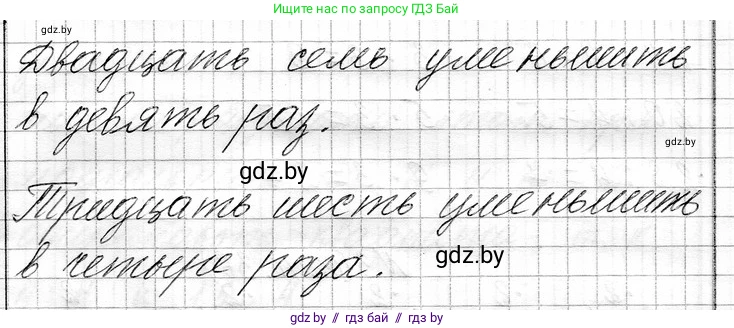 Ищите нас по запросу ГДЗ Бай
gdz.by
Двадцать семь уменьшить
в девять раз.
gdz.by
gdz.by
Тридцать шесть уменьшить
в четыре раза.
gdz.by
gdz.by // гдз бай // гдз.by